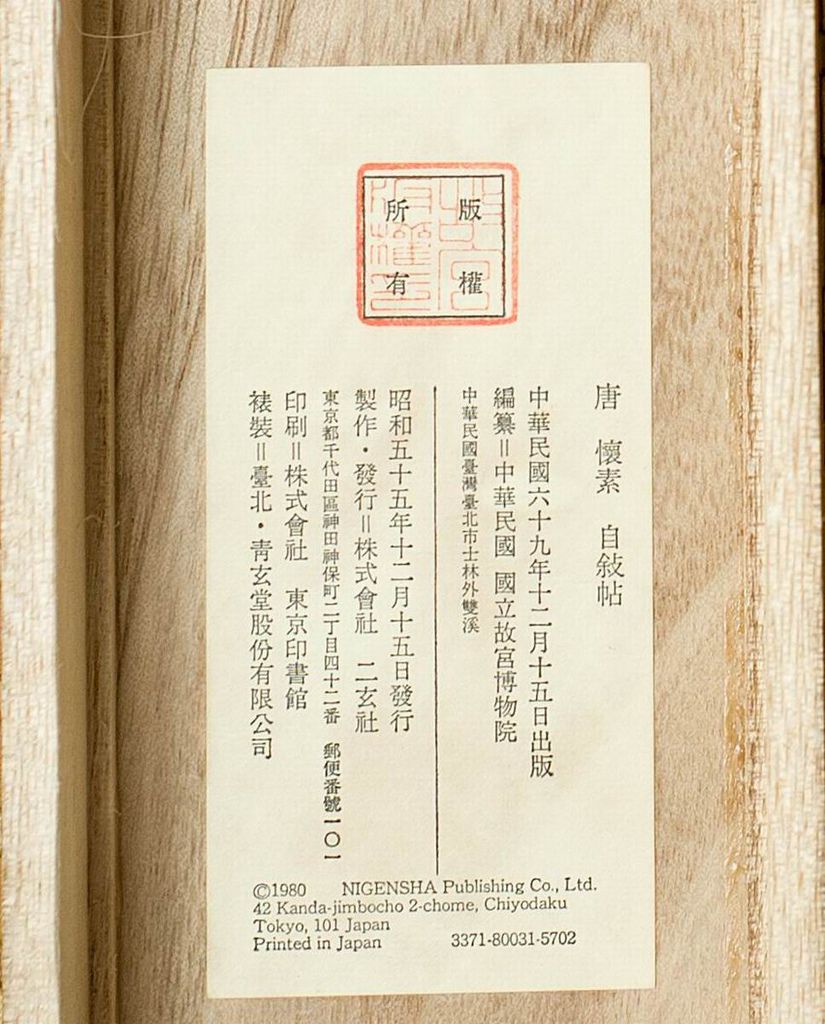 版權
所有
唐　懷素　自敍帖
中華民國六十九年十二月十五日出版
編纂＝中華民國　國立故宮博物院
中華民國臺灣臺北市士林外雙溪
昭和五十五年十二月十五日發行
製作・發行＝株式會社　二玄社
東京都千代田區神田神保町二丁目四十二番　郵便番號一〇一
印刷＝株式會社　東京印書館
裱裝＝臺北・靑玄堂股份有限公司
©1980　NIGENSHA Publishing Co., Ltd.
42 Kanda-jimbocho 2-chome, Chiyodaku
Tokyo, 101 Japan
Printed in Japan　3371-80031-5702